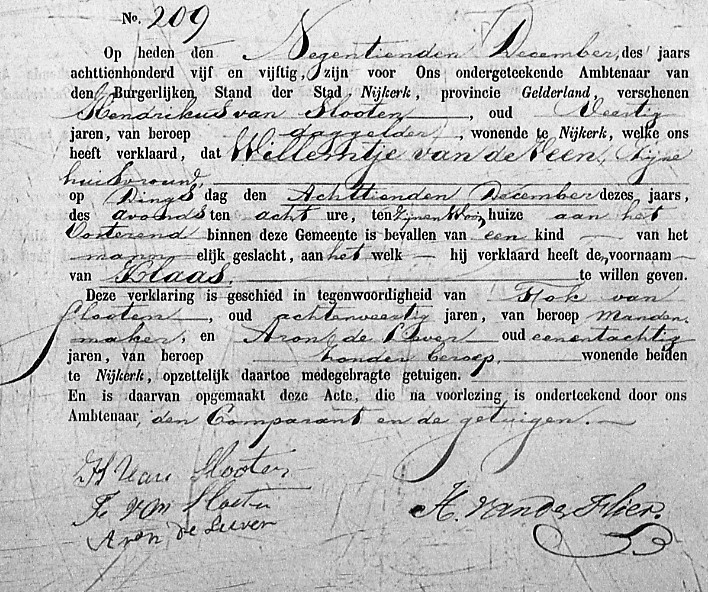 No. 209
Op heden den Negentienden December, des jaars
achttienhonderd vijf en vijftig, zijn voor Ons ondergeteekende Ambtenaar van
den Burgerlijken Stand der Stad Nijkerk, provincie Gelderland, verschenen
Hendrikus van Slooten, oud Veertig
jaren, van beroep daggelder, wonende te Nijkerk, welke ons
heeft verklaard, dat Willemtje van de Veen, Zijne
huisvrouw,
op Dings dag den Achttienden December dezes jaars,
des avonds ten acht ure, ten Zijnen Woon huize aan het
Oosterend binnen deze Gemeente is bevallen van een kind — van het
mann elijk geslacht, aan het welk — hij verklaard heeft de voornaam —
van Klaas, te willen geven.
Deze verklaring is geschied in tegenwoordigheid van Fok van
Slooten, oud achtenveertig jaren, van beroep manden
maker, en Aron de Liever oud eenentachtig
jaren, van beroep zonder beroep, wonende beiden
te Nijkerk, opzettelijk daartoe medegebragte getuigen.
En is daarvan opgemaakt deze Acte, die na voorlezing is onderteekend door ons
Ambtenaar, den Comparant en de getuigen. —
H van Slooten
F van Slooten
Aron de Liever
H. van der Flier.